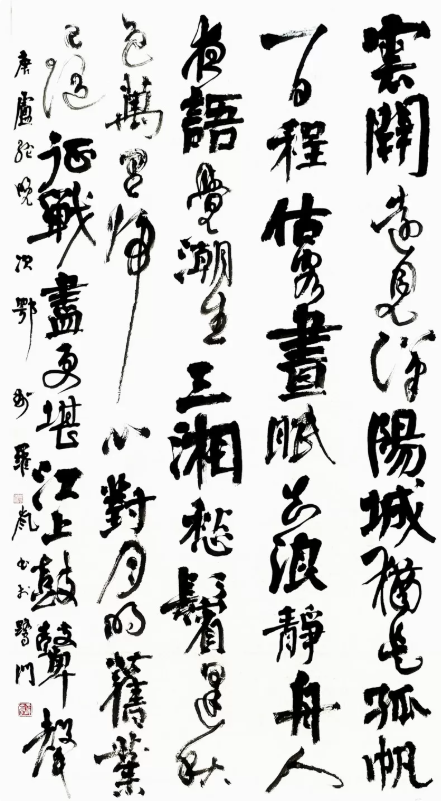 雲開遠見漢陽城猶是孤帆
一日程估客晝眠知浪靜舟人
夜語覺潮生三湘愁鬢逢秋
色萬里歸心對月明舊業
已隨征戰盡更堪江上鼓鼙聲
唐盧綸晚次鄂州 羅 書於鷺門